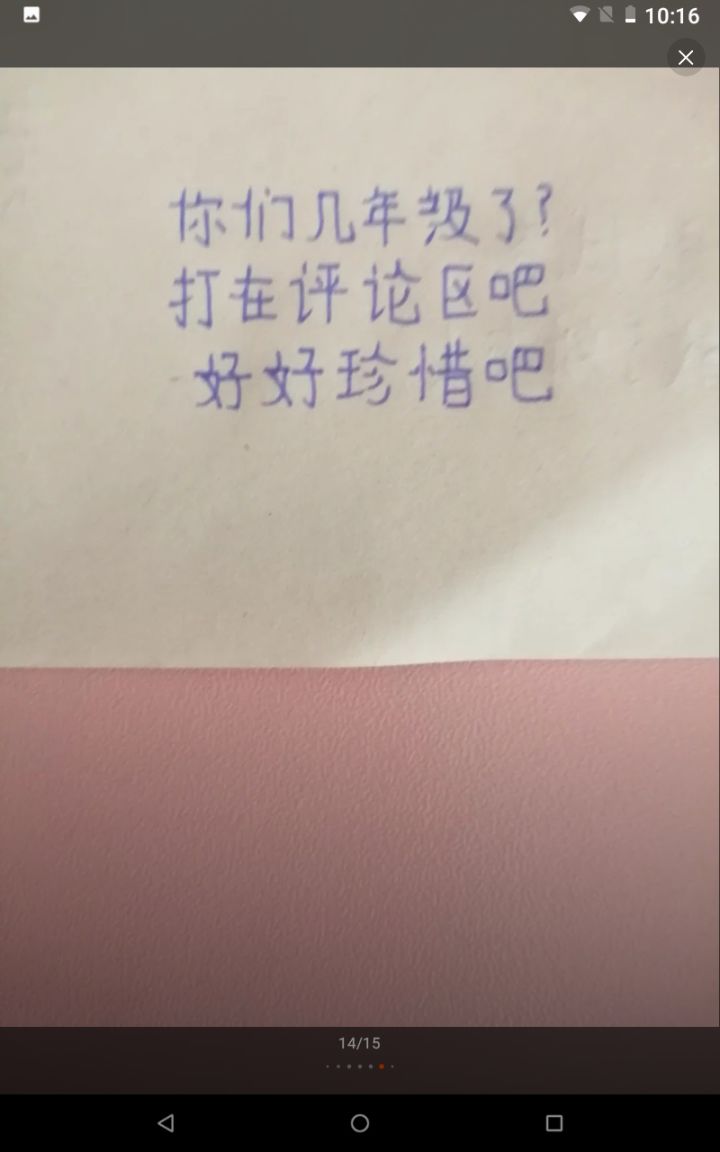 10:16
你们几年级了?
打在评论区吧
好好珍惜吧
14/15